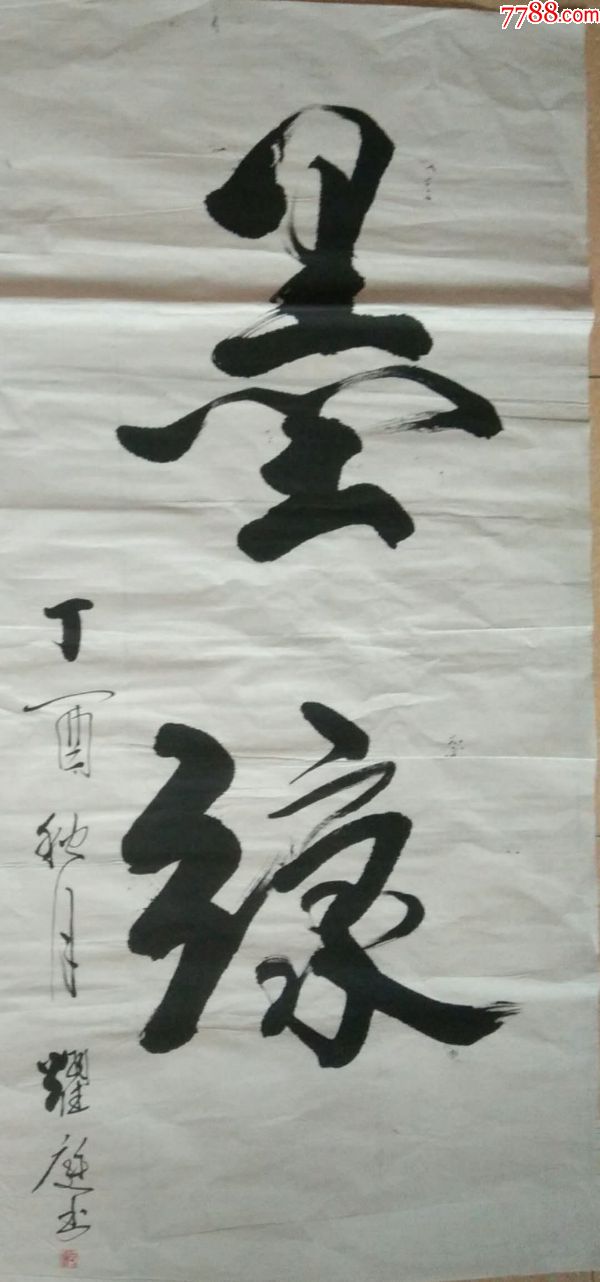 7788.com
墨缘
丁酉秋月 耀庭书